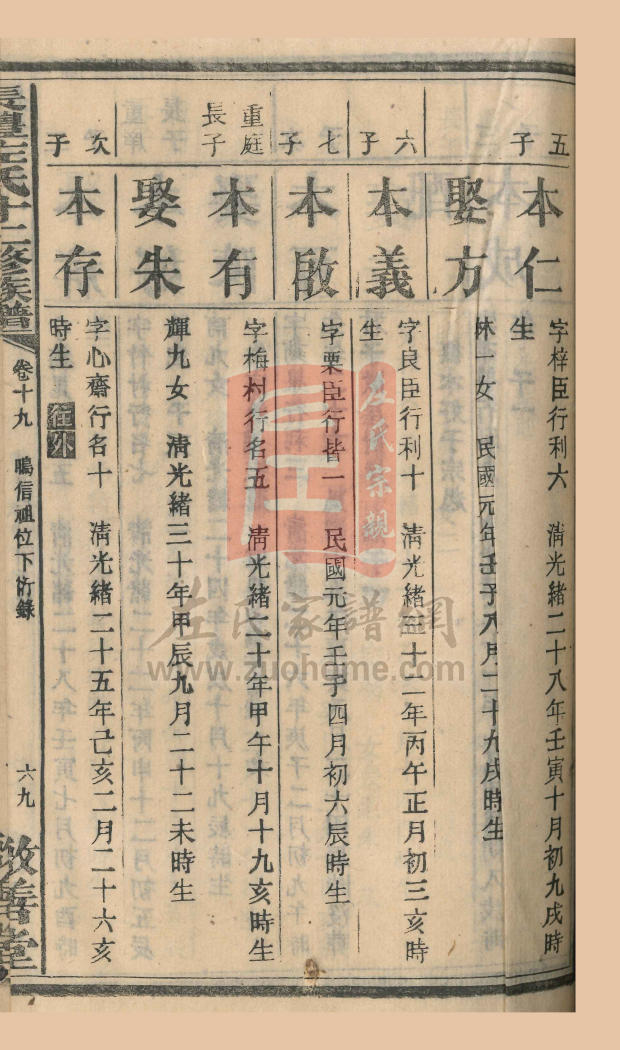 五子
本仁
字梓臣行利六　清光緒二十八年壬寅十月初九戌時
生
娶方
林一女　民國元年壬子八月二十九戌時生
六子
本義
字良臣行利十　清光緒三十二年丙午正月初三亥時
生
七子
本啟
字栗臣行皆一　民國元年壬子四月初六辰時生
重庭
長子
本有
字梅村行名五　清光緒二十年甲午十月十九亥時生
娶朱
輝九女子　清光緒三十年甲辰九月二十二未時生
次子
本存
字心齋行名十　清光緒二十五年己亥二月二十六亥
時生　往外
左氏十二修族譜
卷十九　鳴信祖位下衍錄
六九
敦善堂
左氏宗親
左氏家譜網
www.zuohome.com